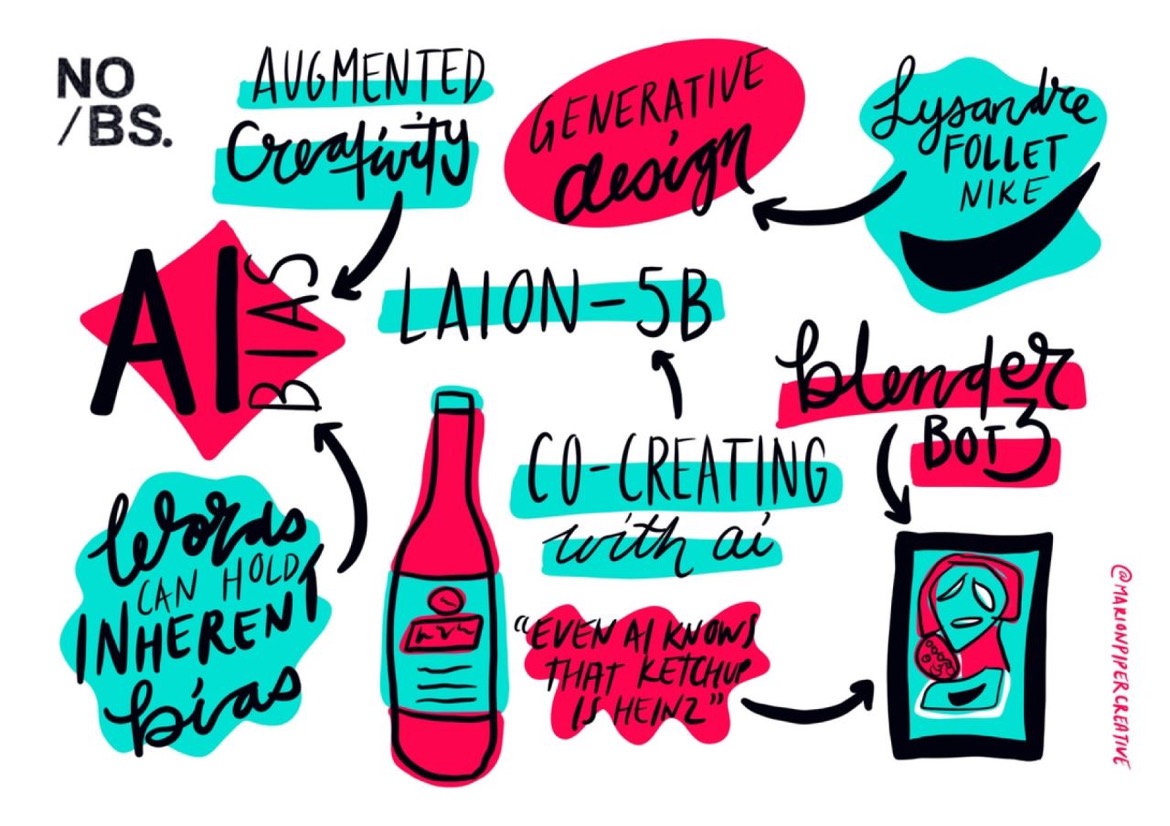 NO
/BS.
AUGMENTED
Creativity
GENERATIVE
design
Lysandre
FOLLET
NIKE
AI
BIAS
LAION-5B
blender
BOT 3
CO-CREATING
with ai
Words
CAN HOLD
INHERENT
bias
"EVEN AI KNOWS
THAT KETCHUP
IS HEINZ"
@MARIONPIPERCREATIVE